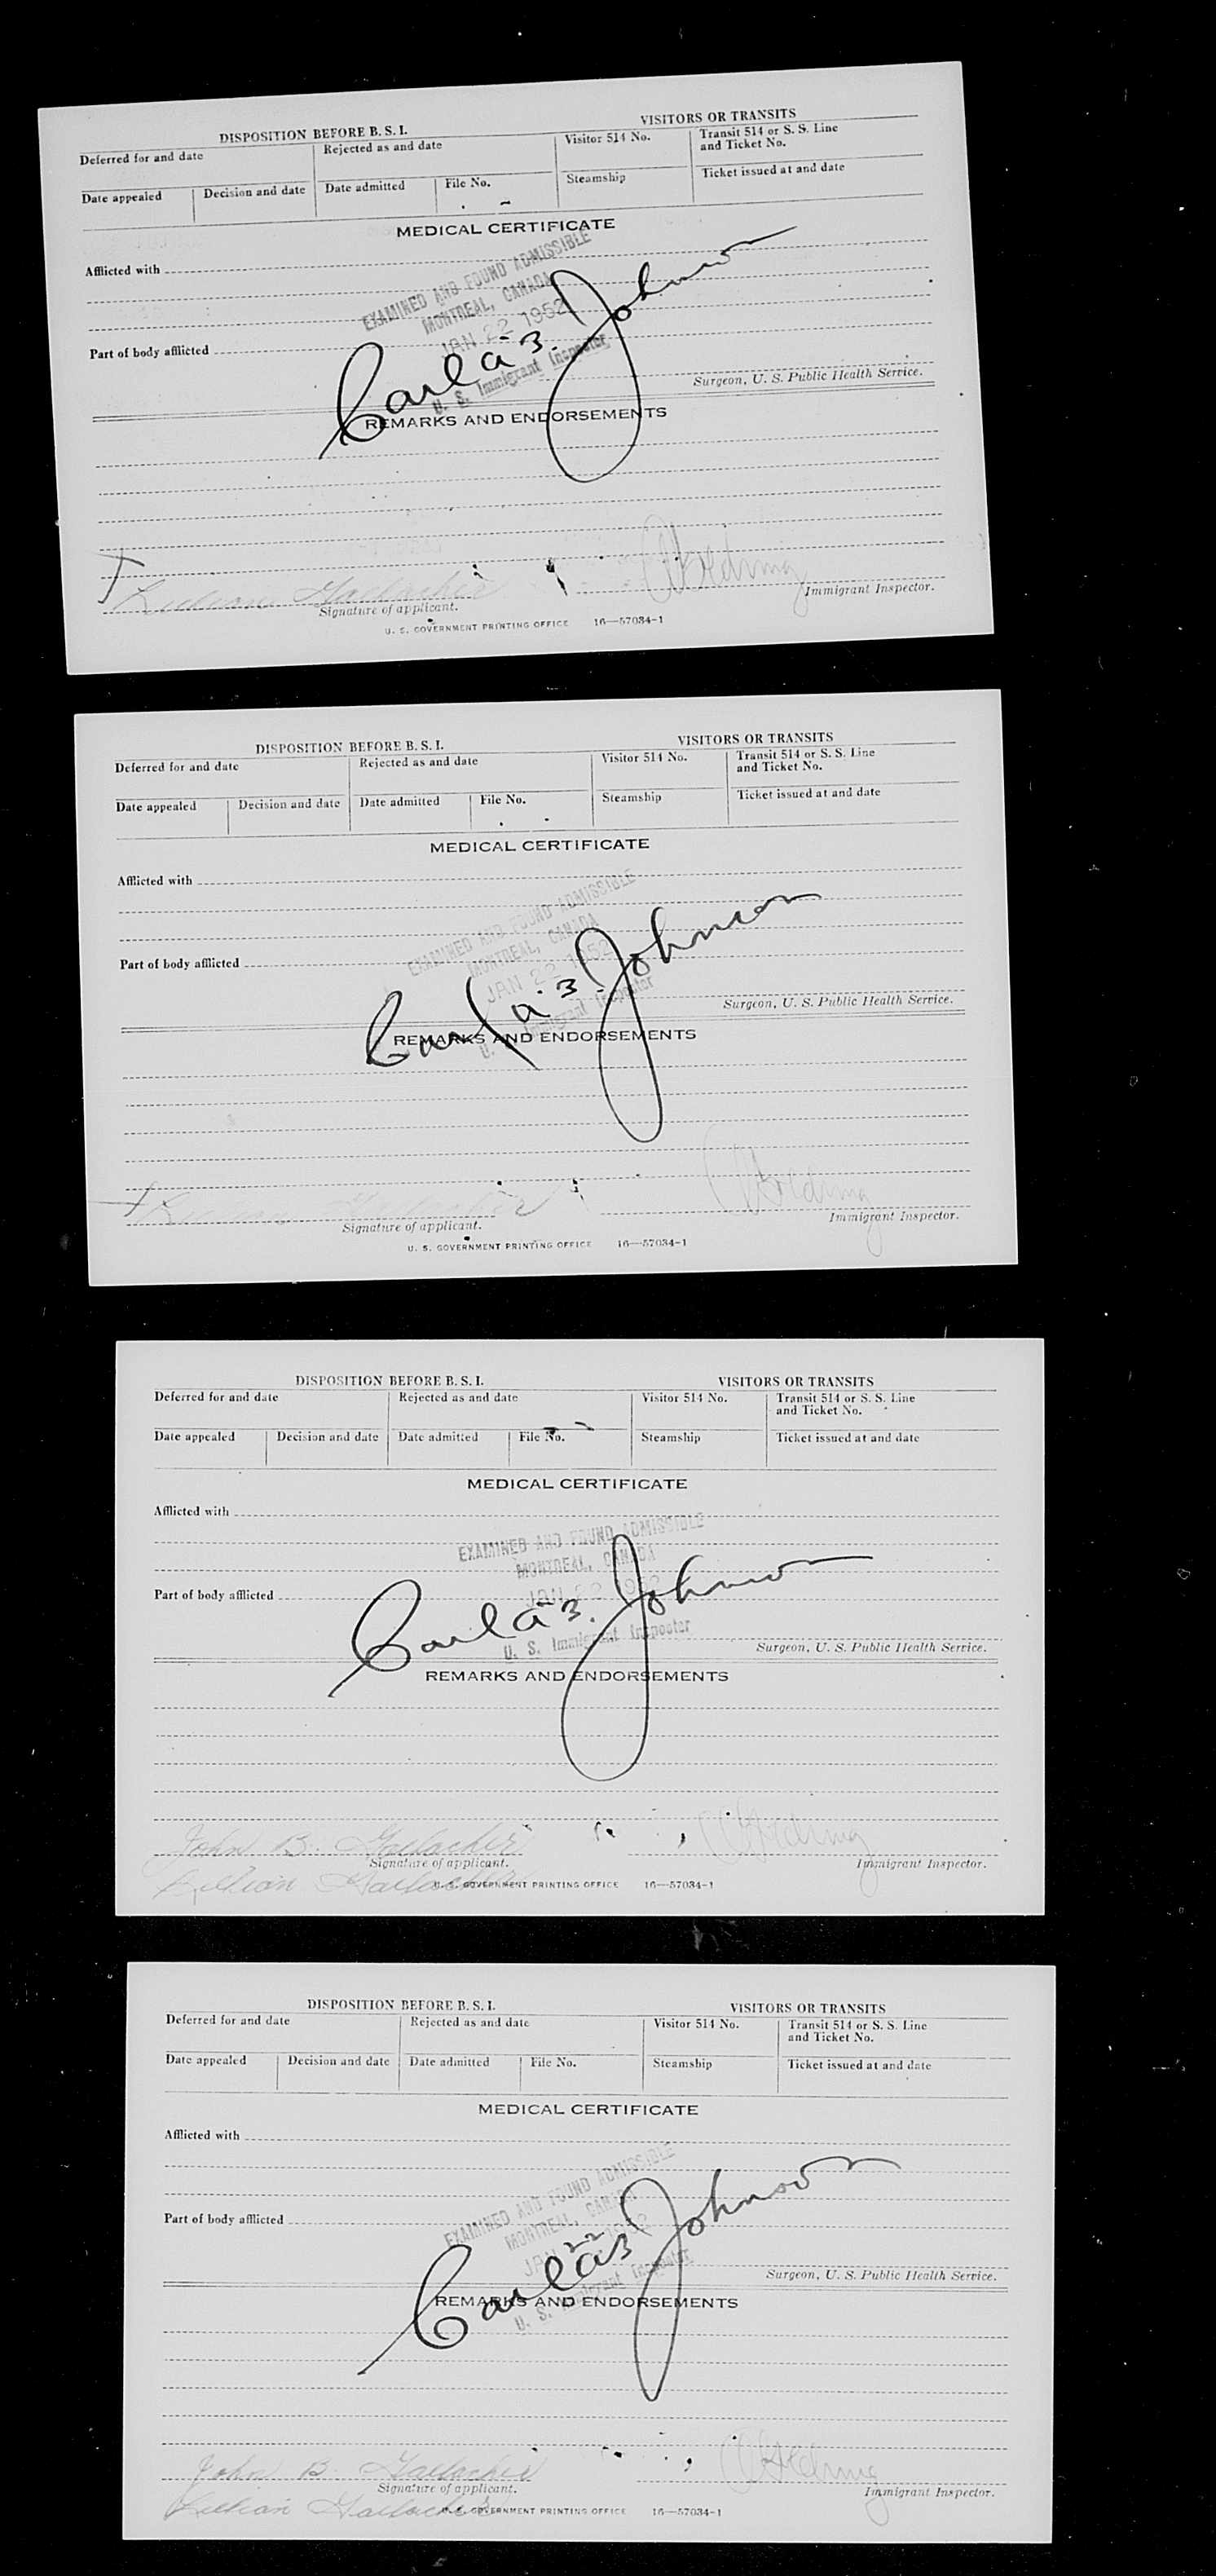 DISPOSITION BEFORE B. S. I.
VISITORS OR TRANSITS
Deferred for and date
Rejected as and date
Visitor 514 No.
Transit 514 or S. S. Line
and Ticket No.
Date appealed
Decision and date
Date admitted
File No.
Steamship
Ticket issued at and date
MEDICAL CERTIFICATE
Afflicted with
EXAMINED AND FOUND ADMISSIBLE
MONTREAL, CANADA
JAN 22 1952
Part of body afflicted
Carl a B. Johnson
U. S. Immigrant Inspector
Surgeon, U. S. Public Health Service.
REMARKS AND ENDORSEMENTS
Signature of applicant.
Immigrant Inspector.
U. S. GOVERNMENT PRINTING OFFICE 16—57034-1
DISPOSITION BEFORE B. S. I.
VISITORS OR TRANSITS
Deferred for and date
Rejected as and date
Visitor 514 No.
Transit 514 or S. S. Line
and Ticket No.
Date appealed
Decision and date
Date admitted
File No.
Steamship
Ticket issued at and date
MEDICAL CERTIFICATE
Afflicted with
EXAMINED AND FOUND ADMISSIBLE
MONTREAL, CANADA
JAN 22 1952
Part of body afflicted
Carl a B. Johnson
U. S. Immigrant Inspector
Surgeon, U. S. Public Health Service.
REMARKS AND ENDORSEMENTS
Signature of applicant.
Immigrant Inspector.
U. S. GOVERNMENT PRINTING OFFICE 16—57034-1
DISPOSITION BEFORE B. S. I.
VISITORS OR TRANSITS
Deferred for and date
Rejected as and date
Visitor 514 No.
Transit 514 or S. S. Line
and Ticket No.
Date appealed
Decision and date
Date admitted
File No.
Steamship
Ticket issued at and date
MEDICAL CERTIFICATE
Afflicted with
EXAMINED AND FOUND ADMISSIBLE
MONTREAL, CANADA
JAN 22 1952
Part of body afflicted
Carl a B. Johnson
U. S. Immigrant Inspector
Surgeon, U. S. Public Health Service.
REMARKS AND ENDORSEMENTS
John B. Gallacher
Signature of applicant.
Immigrant Inspector.
Lillian Gallacher
U. S. GOVERNMENT PRINTING OFFICE 16—57034-1
DISPOSITION BEFORE B. S. I.
VISITORS OR TRANSITS
Deferred for and date
Rejected as and date
Visitor 514 No.
Transit 514 or S. S. Line
and Ticket No.
Date appealed
Decision and date
Date admitted
File No.
Steamship
Ticket issued at and date
MEDICAL CERTIFICATE
Afflicted with
EXAMINED AND FOUND ADMISSIBLE
MONTREAL, CANADA
JAN 22 1952
Part of body afflicted
Carl a B Johnson
U. S. Immigrant Inspector
Surgeon, U. S. Public Health Service.
REMARKS AND ENDORSEMENTS
John B Gallacher
Signature of applicant.
Immigrant Inspector.
Lillian Gallacher
U. S. GOVERNMENT PRINTING OFFICE 16—57034-1